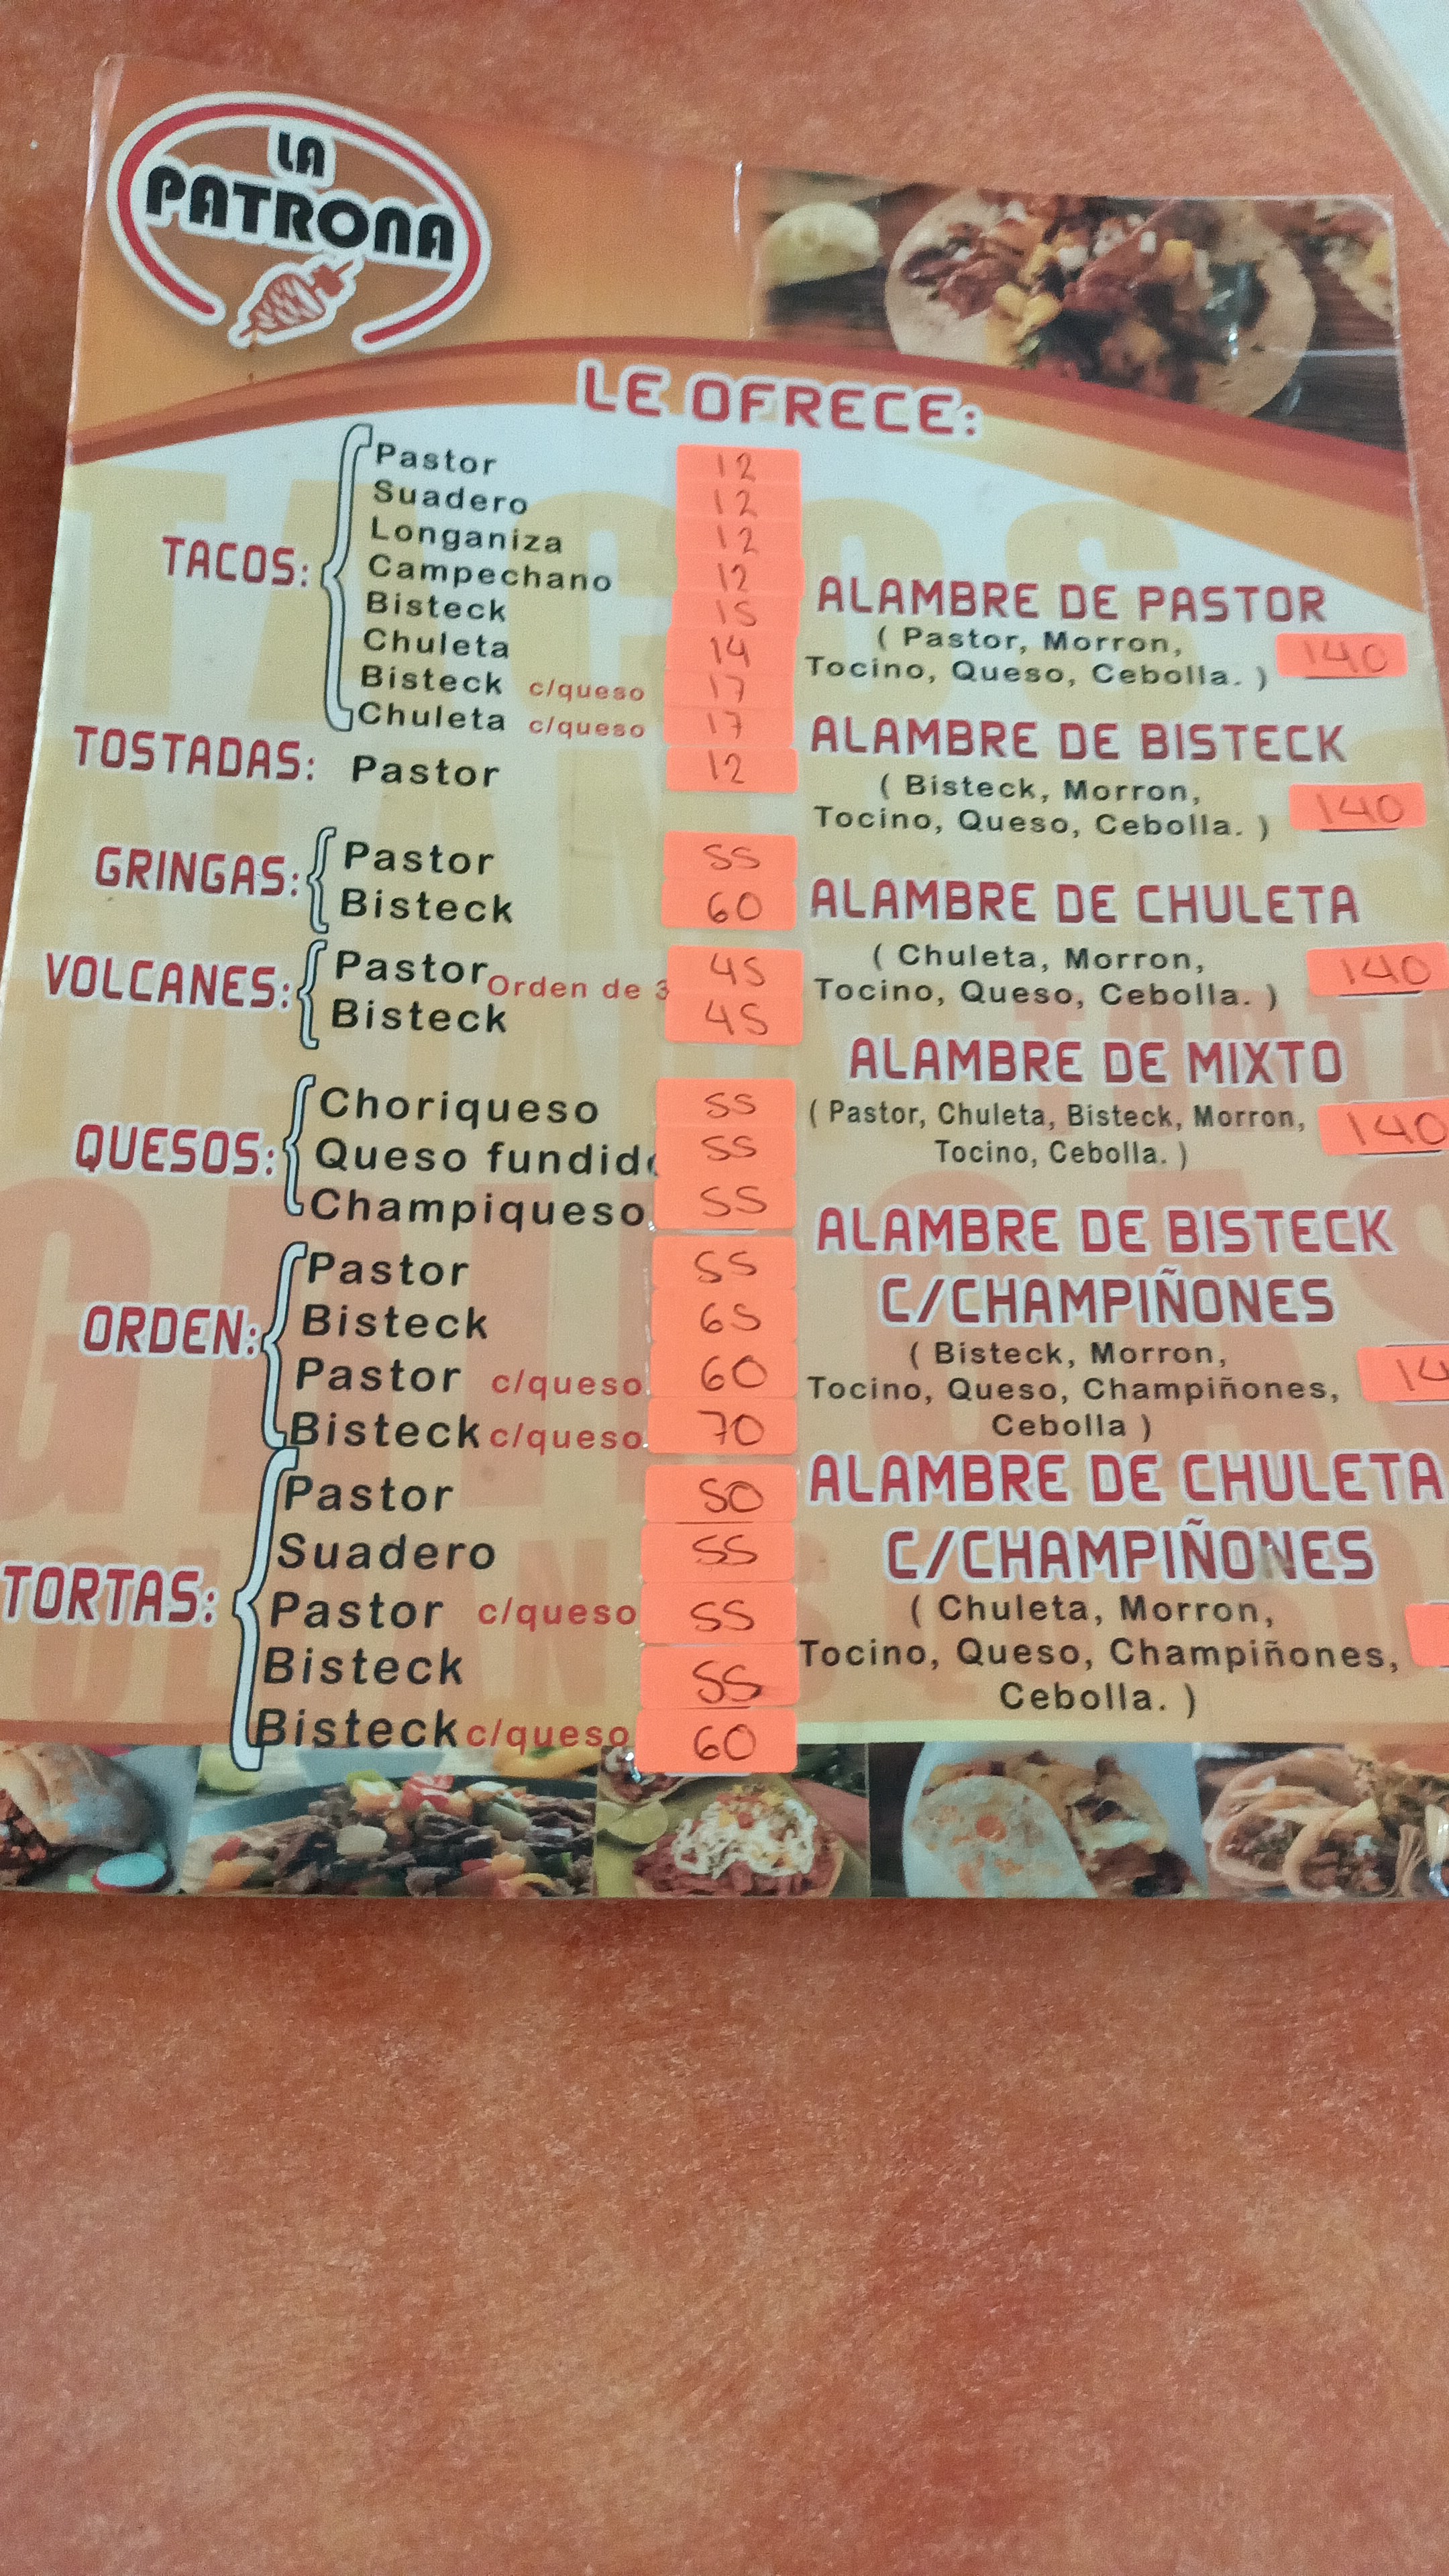 LA
PATRONA
LE OFRECE:
TACOS:
Pastor 12
Suadero 12
Longaniza 12
Campechano 12
Bisteck 15
Chuleta 14
Bisteck c/queso 17
Chuleta c/queso 17
TOSTADAS: Pastor 12
GRINGAS:
Pastor 55
Bisteck 60
VOLCANES:
Pastor Orden de 3 45
Bisteck 45
QUESOS:
Choriqueso 55
Queso fundid 55
Champiqueso 55
ORDEN:
Pastor 55
Bisteck 65
Pastor c/queso 60
Bisteck c/queso 70
TORTAS:
Pastor 50
Suadero 55
Pastor c/queso 55
Bisteck 55
Bisteck c/queso 60
ALAMBRE DE PASTOR
( Pastor, Morron,
Tocino, Queso, Cebolla. ) 140
ALAMBRE DE BISTECK
( Bisteck, Morron,
Tocino, Queso, Cebolla. ) 140
ALAMBRE DE CHULETA
( Chuleta, Morron,
Tocino, Queso, Cebolla. ) 140
ALAMBRE DE MIXTO
( Pastor, Chuleta, Bisteck, Morron, 140
Tocino, Cebolla. )
ALAMBRE DE BISTECK
C/CHAMPIÑONES
( Bisteck, Morron,
Tocino, Queso, Champiñones, 14
Cebolla )
ALAMBRE DE CHULETA
C/CHAMPIÑONES
( Chuleta, Morron,
Tocino, Queso, Champiñones,
Cebolla. )